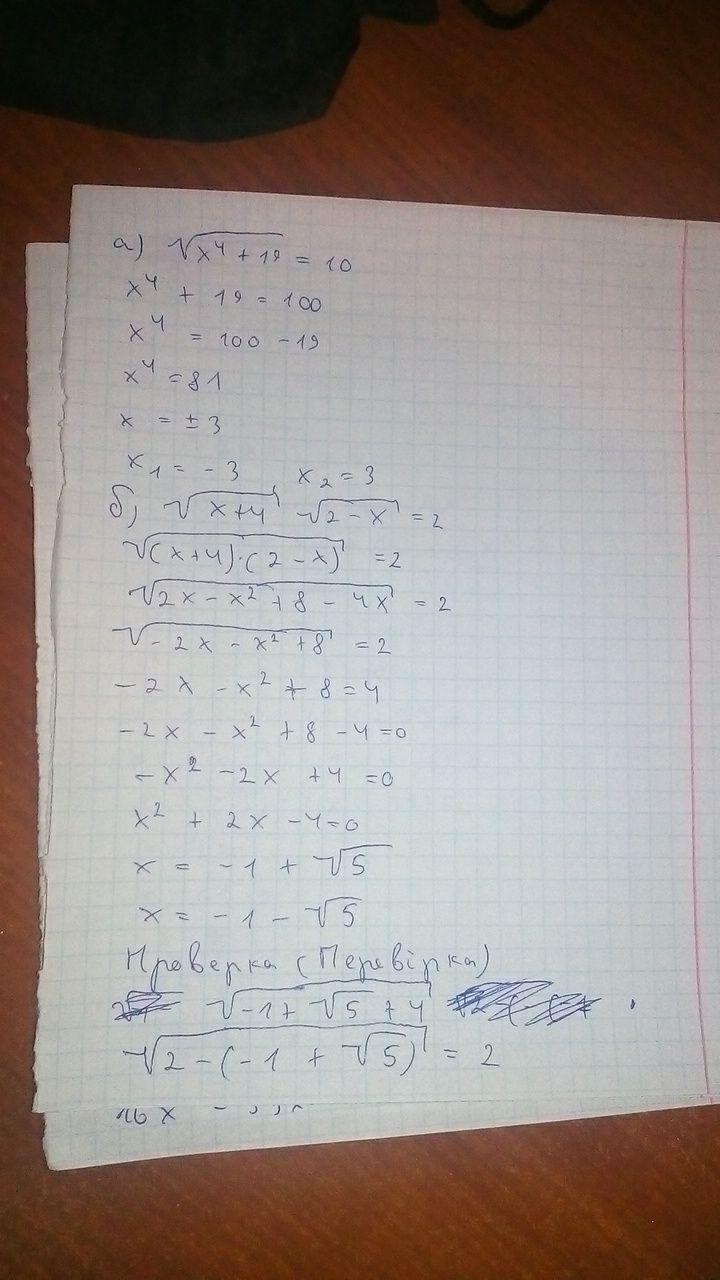 а) √(x⁴ + 19) = 10
x⁴ + 19 = 100
x⁴ = 100 - 19
x⁴ = 81
x = ± 3
x₁ = - 3 x₂ = 3
б) √(x+4) √(2 - x) = 2
√((x+4)·(2 - x)) = 2
√(2x - x² + 8 - 4x) = 2
√(-2x - x² + 8) = 2
-2x - x² + 8 = 4
-2x - x² + 8 - 4 = 0
-x² - 2x + 4 = 0
x² + 2x - 4 = 0
x = -1 + √5
x = -1 - √5
Проверка (Перевірка)
√(-1 + √5 + 4) ·
√(2 - (-1 + √5)) = 2